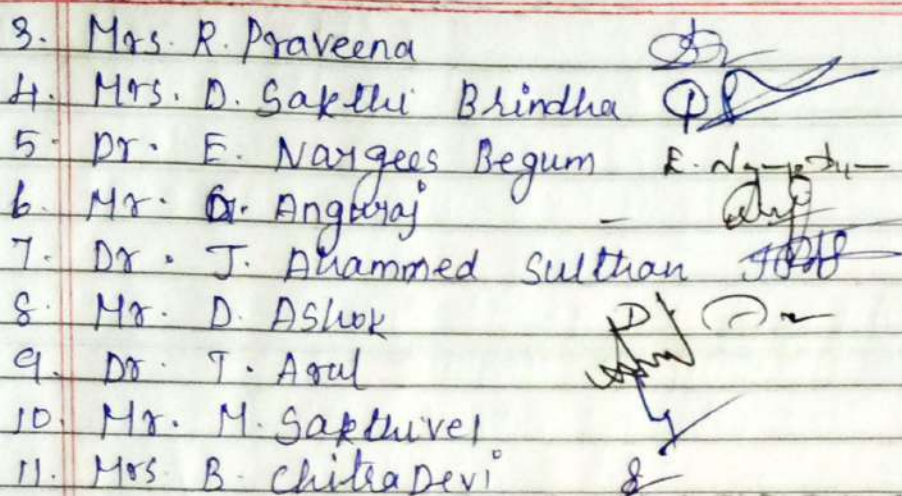 3. Mrs. R. Praveena
4. Mrs. D. Sakthi Brindha
5. Dr. E. Nargees Begum
6. Mr. G. Anguraj -
7. Dr. J. Ahammed Sulthan
8. Mr. D. Ashok
9. Dr. T. Arul
10. Mr. M. Sakthivel
11. Mrs. B. Chitra Devi